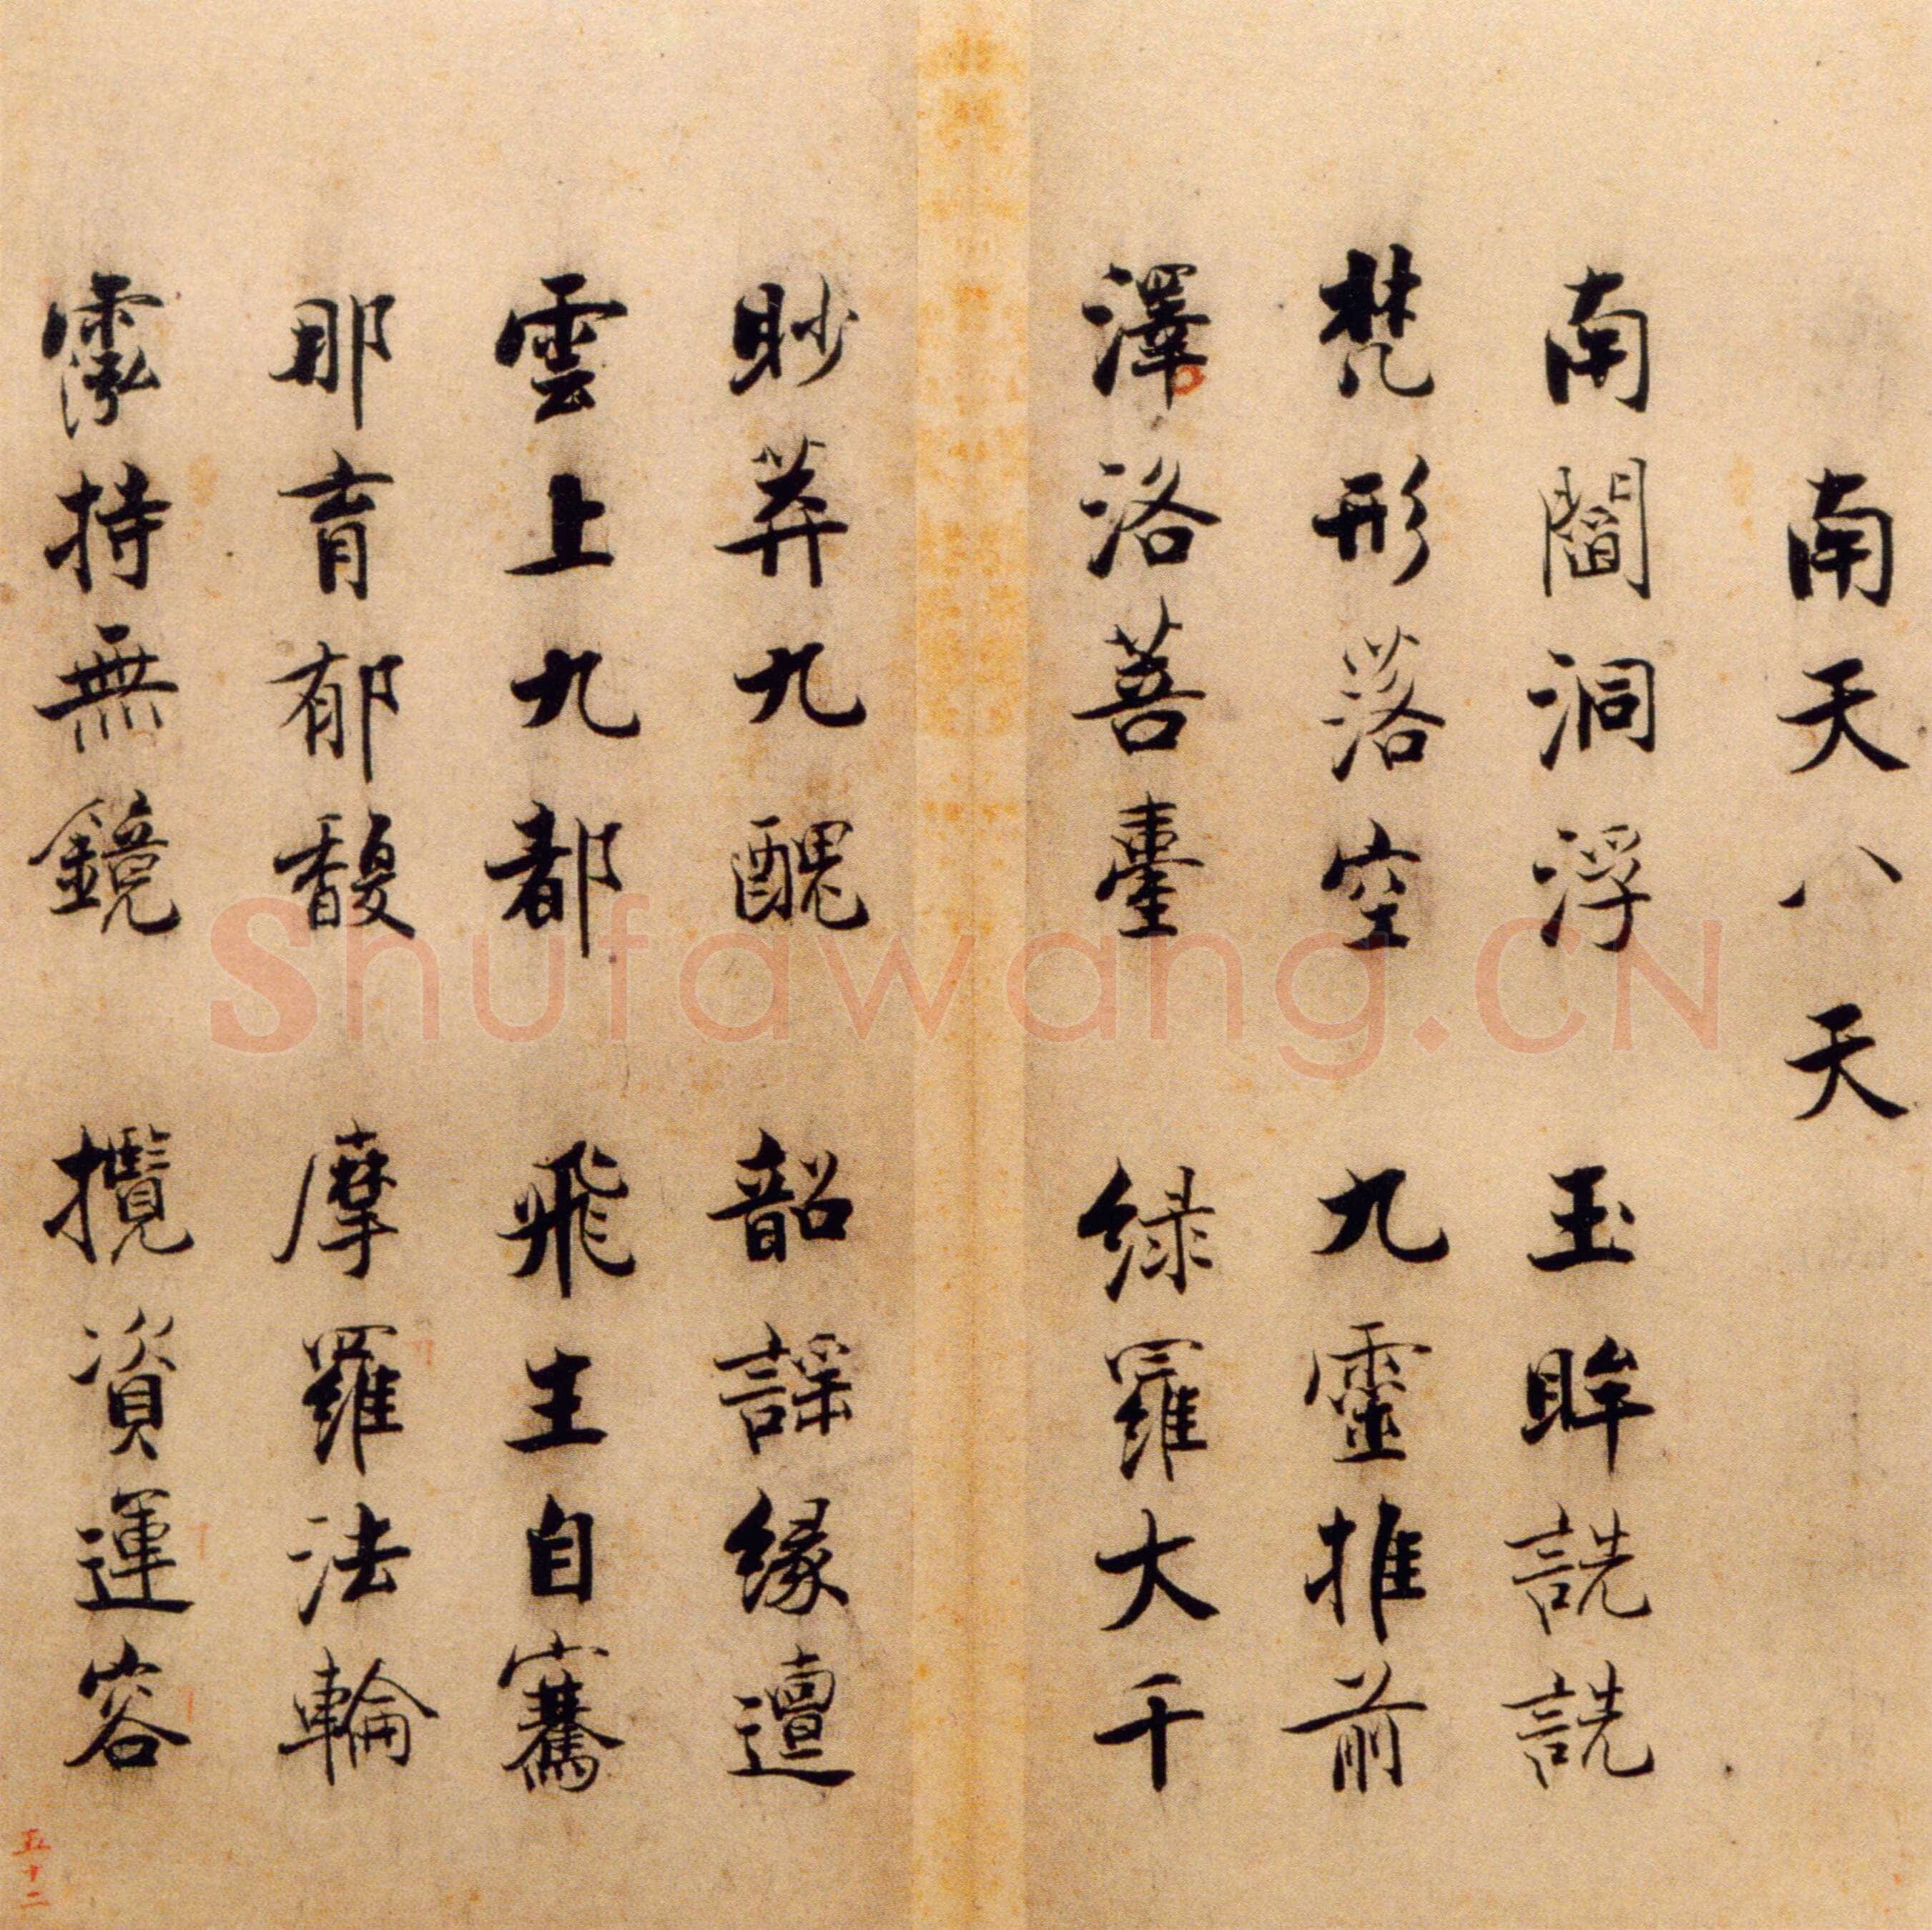 南天八天
南閻洞浮 玉眸詵詵
梵形落空 九靈推前
澤洛菩臺 緑羅大千
眇莽九醜 韶謡緣邅
雲上九都 飛主自騫
那育郁馥 摩羅法輪
霐持無鏡 攬資運容
五十二
Shufawang.CN